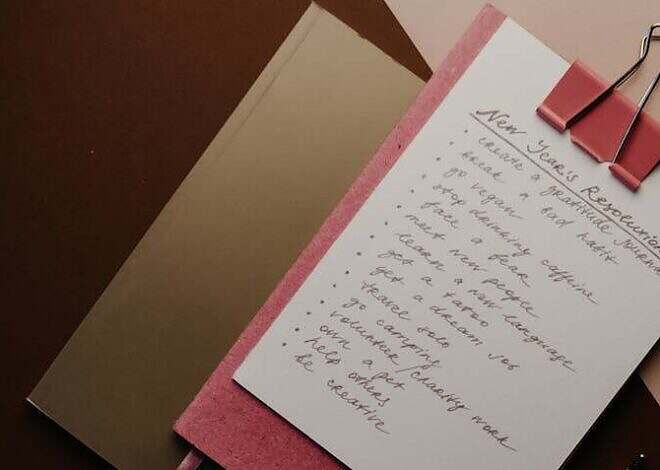 New Year's Resolution
• create a gratitude journa
• break a bad habit
• go vegan
• stop drinking caffeine
• face a fear
• meet new people
• learn a new language
• get a tatoo
• get a dream job
• travel solo
• go camping
• volunteer/charity work
• own a pet
• help others
• be creative